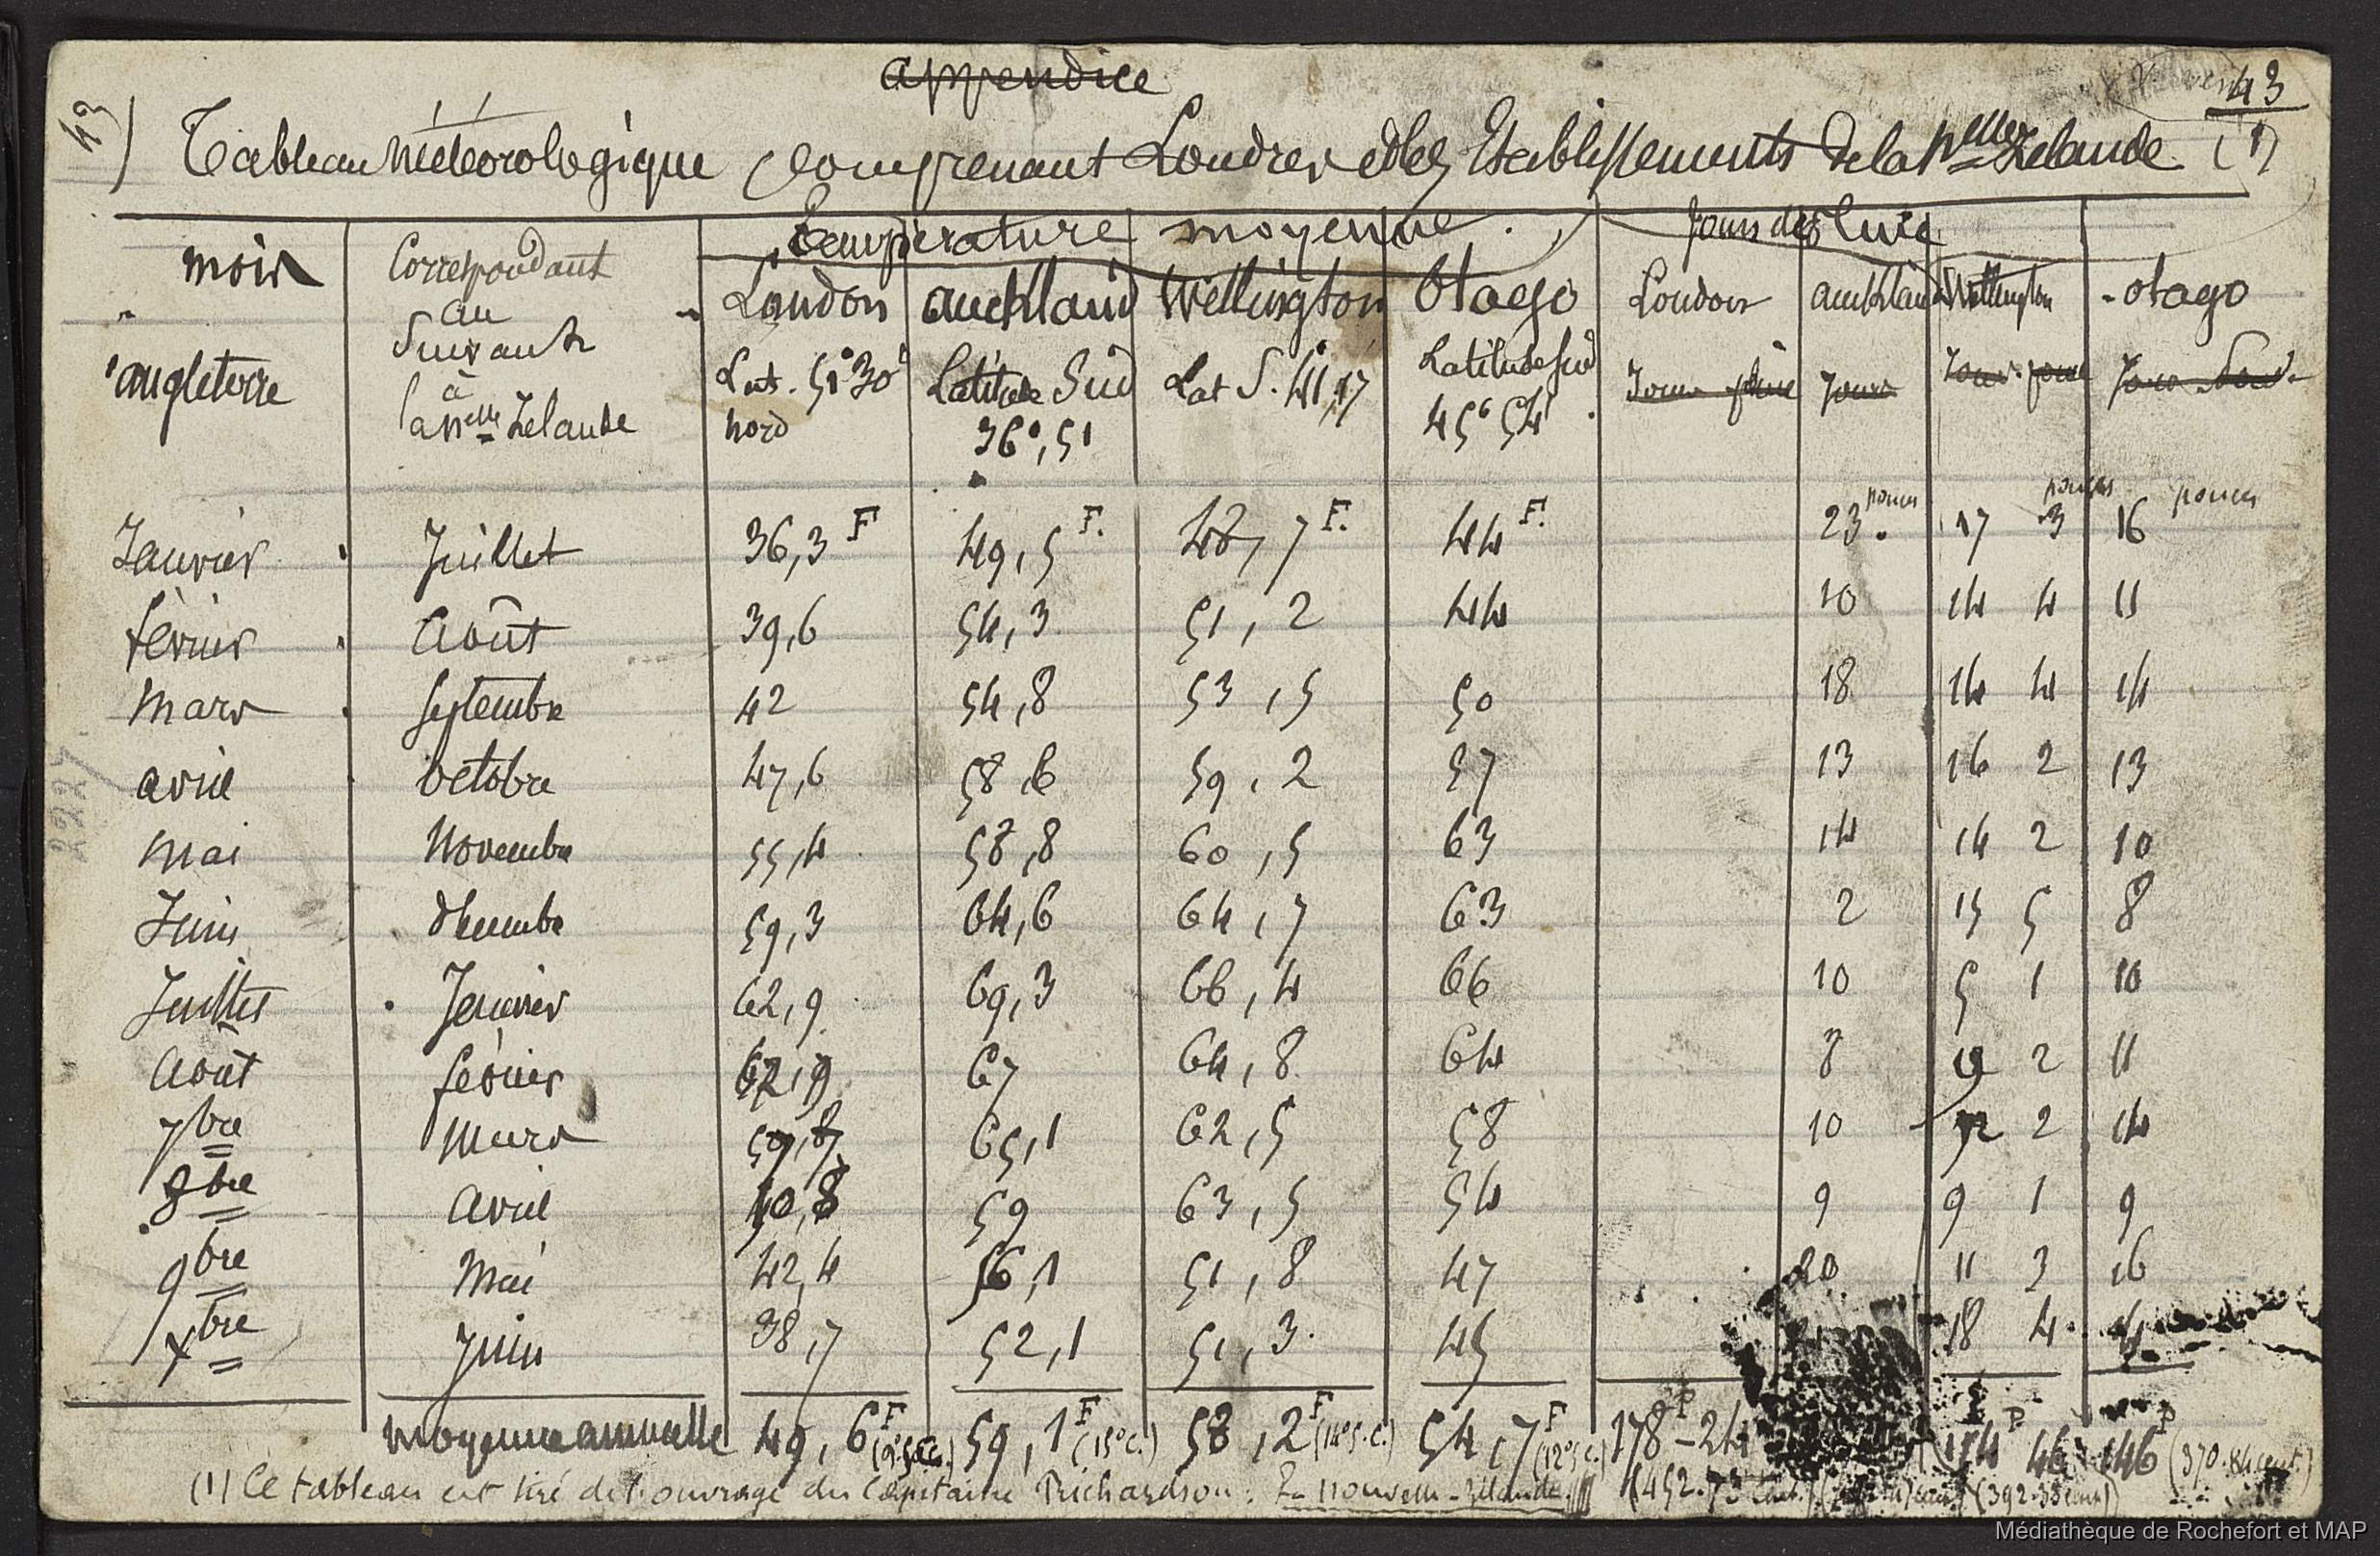 appendice
43
43) Tableau Météorologique Comprenant Londres et les Etablissements de la Nlle Zelande (1)
Température moyenne. Jours de Pluie
mois Correspondant London auckland Wellington Otago London auckland Wellington otago
au
Suivant
angleterre à Lat. 51°30' Latitude Sud Lat S. 41,17 Latitude Sud Jours pluie Jours Jours
la Nelle Zelande nord 36°,51 45° 54'
pouces pouces pouces
Janvier Juillet 36,3 F 49,5 F. 48,7 F. 44 F. 23 17 3 16
février Août 39,6 54,3 51,2 44 10 14 4 11
Mars Septembre 42 54,8 53,5 50 18 14 4 14
avril Octobre 47,6 58,6 59,2 57 13 16 2 13
Mai Novembre 55,4 58,8 60,5 63 14 14 2 10
Juin décembre 59,3 64,6 64,7 63 2 15 5 8
Juillet Janvier 62,9 69,3 66,4 66 10 5 1 10
Août février 62,9 67 64,8 64 8 2 11
7bre Mars 65,1 62,5 58 10 12 2 14
8bre Avril 50,8 59 63,5 54 9 9 1 9
9bre Mai 42,4 56,1 51,8 47 20 11 3 16
Xbre Juin 38,7 52,1 51,3 45 18 4
moyenne annuelle 49,6 F 59,1 F (15° c.) 58,2 F (14°5. c.) 54,7 F (12°5 c.) 178 P - 24 154 P 46 146 P (370.84 cent.)
(1) Ce tableau est tiré de l'ouvrage du Capitaine Richardson: La nouvelle-Zélande. (452.73 cent.) (392.38 cent.)
222
Médiathèque de Rochefort et MAP